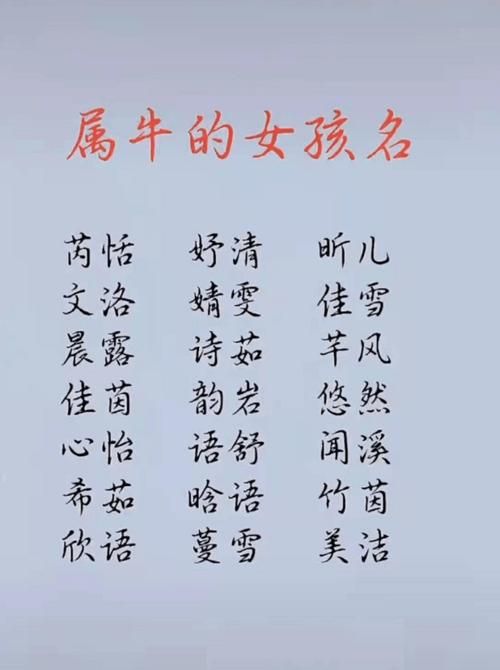 属牛的女孩名
芮恬 妤清 昕儿
文洛 婧雯 佳雪
晨露 诗茹 芊风
佳茵 韵岩 悠然
心怡 语舒 闻溪
希茹 晗语 竹茵
欣语 蔓雪 美洁